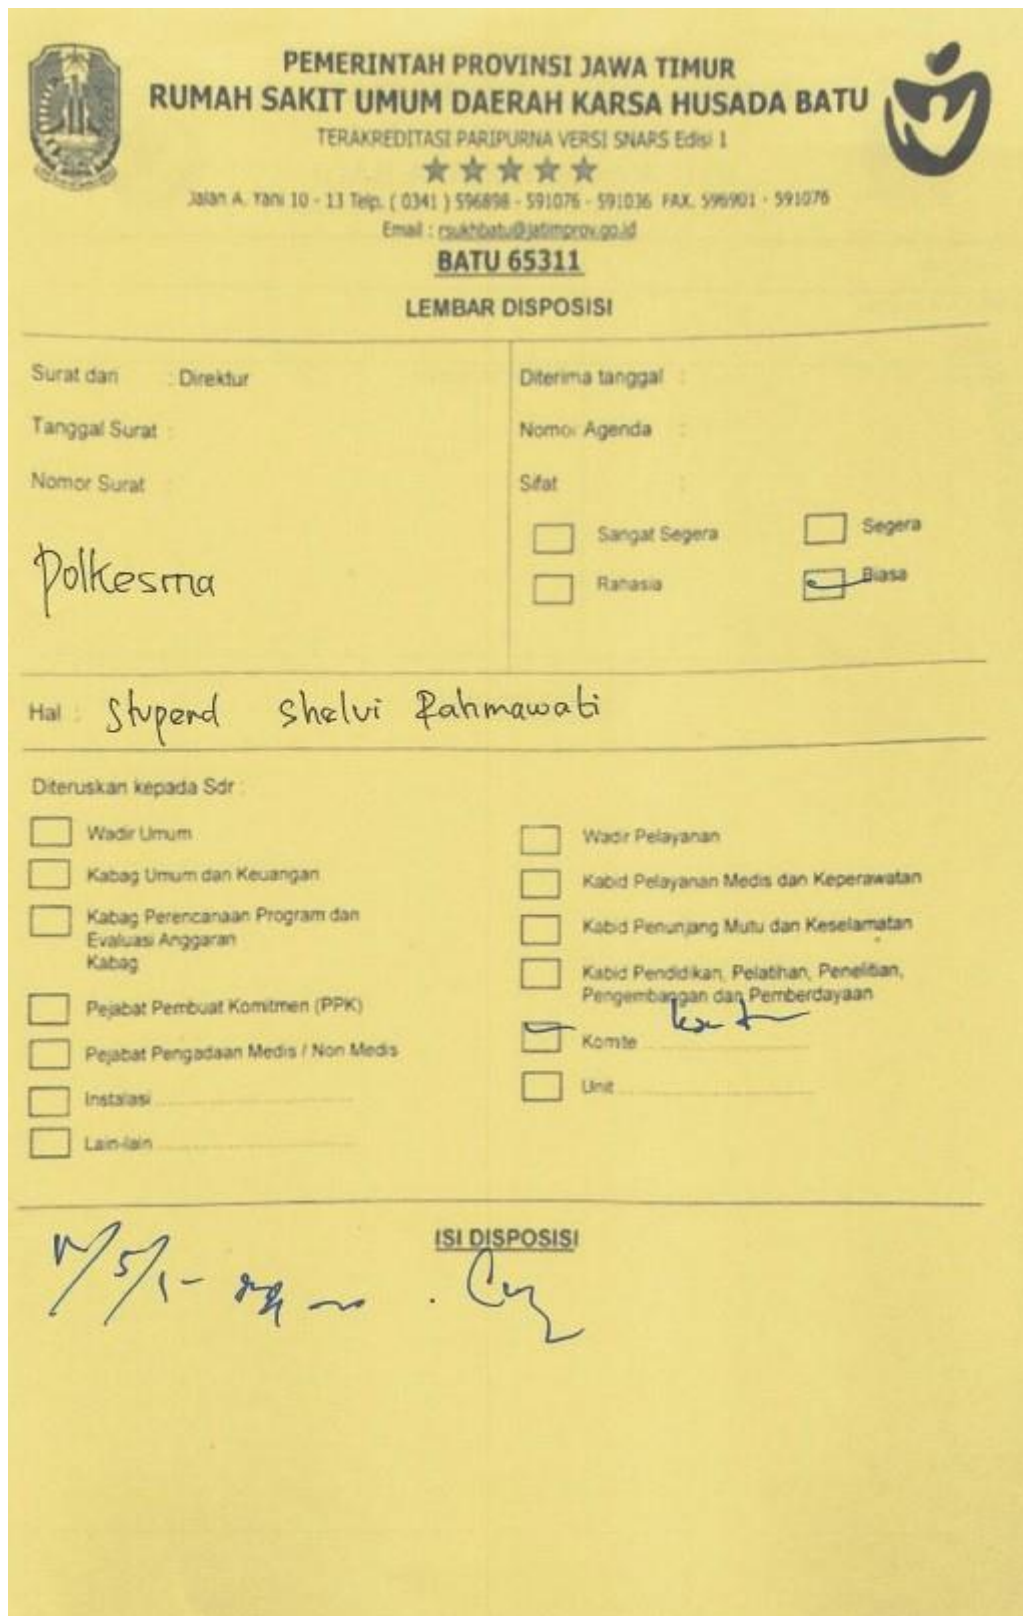 PEMERINTAH PROVINSI JAWA TIMUR
RUMAH SAKIT UMUM DAERAH KARSA HUSADA BATU
TERAKREDITASI PARIPURNA VERSI SNARS Edisi 1
Jalan A. Yani 10 - 13 Telp. ( 0341 ) 596898 - 591076 - 591036 FAX. 596901 - 591076
Email : rsukhbatu@jatimprov.go.id
BATU 65311
LEMBAR DISPOSISI
Surat dari : Direktur
Tanggal Surat :
Nomor Surat :
Polkesma
Diterima tanggal :
Nomor Agenda :
Sifat :
Sangat Segera Segera
Rahasia Biasa
Hal : Stupend Shelvi Rahmawati
Diteruskan kepada Sdr :
Wadir Umum
Kabag Umum dan Keuangan
Kabag Perencanaan Program dan
Evaluasi Anggaran
Kabag
Pejabat Pembuat Komitmen (PPK)
Pejabat Pengadaan Medis / Non Medis
Instalasi
Lain-lain
Wadir Pelayanan
Kabid Pelayanan Medis dan Keperawatan
Kabid Penunjang Mutu dan Keselamatan
Kabid Pendidikan, Pelatihan, Penelitian,
Pengembangan dan Pemberdayaan
Komite
Unit
ISI DISPOSISI